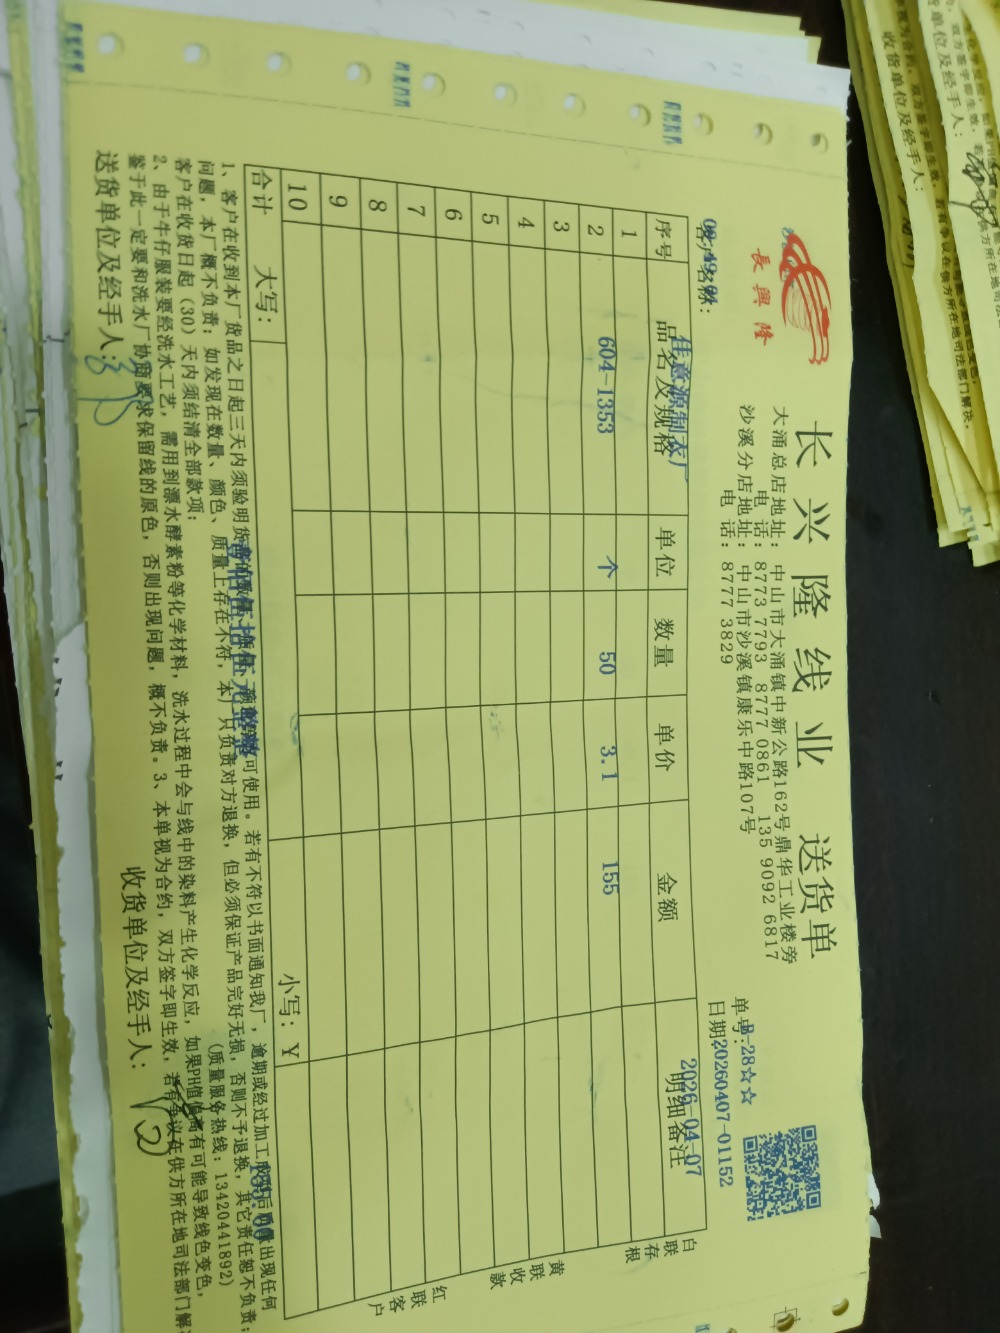 長興隆
长兴隆线业 送货单
大涌总店地址：中山市大涌镇中新公路162号鼎华工业楼旁
电话：8773 7793 8777 0861 135 9092 6817
沙溪分店地址：中山市沙溪镇康乐中路107号
电话：8777 3829
单号：B-28☆☆
20260407-01152
日期：2026-04-07
客户名称：佳意源制衣厂
序号 品名及规格 单位 数量 单价 金额 明细备注
1 604-1353 个 50 3.1 155
2
3
4
5
6
7
8
9
10
合计 大写：壹佰伍拾伍元整 小写：￥155.00
白联存根
黄联收款
红联客户
1、客户在收到本厂货品之日起三天内须验明货品的数量、质量、颜色后方可使用。若有不符以书面通知我厂，逾期或经过加工成品后质量出现任何
问题，本厂概不负责；如发现在数量、颜色、质量上存在不符，本厂只负责对方退换，但必须保证产品完好无损，否则不予退换，其它责任恕不负责；
客户在收货日起（30）天内须结清全部款项； （质量服务热线：13420441892）
2、由于牛仔服装要经洗水工艺，需用到漂水酵素粉等化学材料，洗水过程中会与线中的染料产生化学反应，如果PH值偏高有可能导致线色变色，
鉴于此一定要和洗水厂协商要求保留线的原色，否则出现问题，概不负责。3、本单视为合约，双方签字即生效，若有争议在供方所在地司法部门解
送货单位及经手人： 收货单位及经手人：
收货单位及经手人：